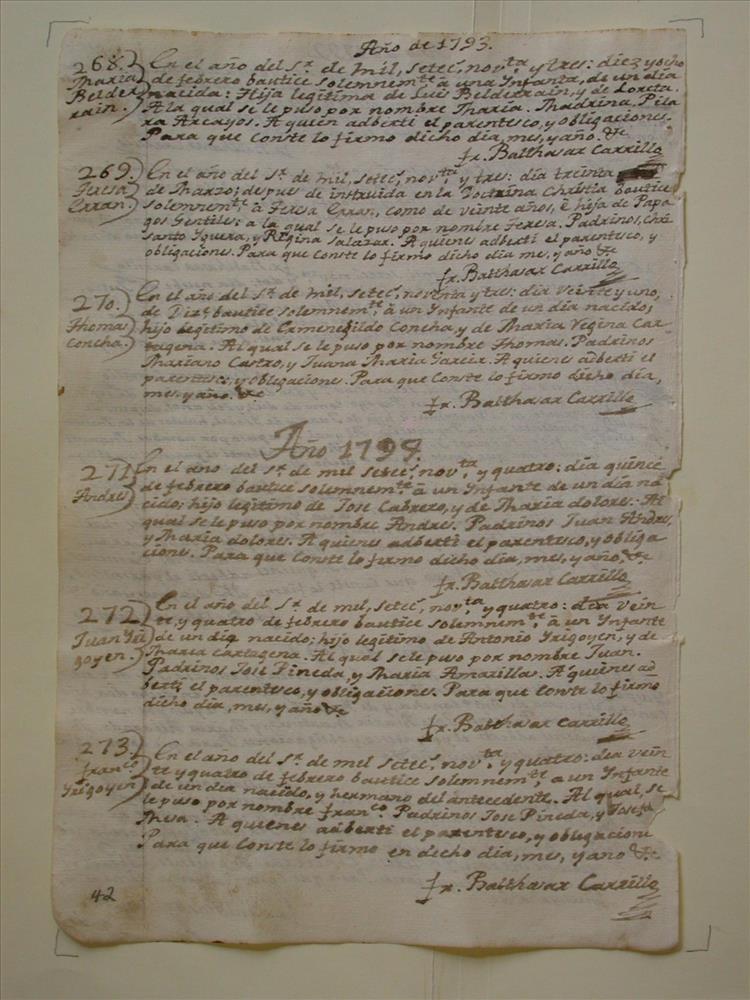 Año de 1793.
268. En el año del Sr. de mil, setec.s nov.ta y tres: diez y ocho
Maria de febrero bautice solemnem.te à una Infanta, de un dia
Belder nacida: Hija legitima de Luis Belderrain, y de Loreta.
rain. A la qual se le puso por nombre Maria. Madrina, Pila
ra Arcayos. A quien adberti el parentesco, y obligaciones.
Para que conste lo firmo dicho dia, mes, y año. &c.
fr. Balthasar Carrillo
269. En el año del Sr. de mil, setec.s nov.ta y tres: dia treinta
Teresa de Marzo; despues de instruida en la Doctrina Christia bautice
Erran solemnem.te à Teresa Erran, como de veinte años, è hija de Papa
gos Gentiles: a la qual se le puso por nombre Teresa. Padrinos, Chri
santo Yguera, y Regina Salazar. A quienes adberti el parentesco, y
obligaciones. Para que conste lo firmo dicho dia mes, y año &c.
fr. Balthasar Carrillo
270. En el año del Sr. de mil, setec.s noventa y tres: dia veinte y uno,
Thomas de Diz.e bautice solemnem.te à un Infante de un dia nacido;
Concha. hijo legitimo de Ermenegildo Concha, y de Maria Regina Car
tagena. Al qual se le puso por nombre Thomas. Padrinos
Mariano Castro, y Juana Maria Garcia. A quienes adberti el
parentesco, y obligaciones. Para que conste lo firmo dicho dia,
mes, y año. &c
fr. Balthasar Carrillo
Año 1794.
271 En el año del Sr. de mil setec.s nov.ta y quatro: dia quince
Andres de febrero bautice solemnem.te à un Infante de un dia na
cido; hijo legitimo de Jose Cabrero, y de Maria dolores. Al
qual se le puso por nombre Andres. Padrinos Juan Andres,
y Maria dolores. A quienes adberti el parentesco, y obliga
ciones. Para que conste lo firmo dicho dia, mes, y año, &c
fr. Balthasar Carrillo
272 En el año del Sr. de mil, setec.s nov.ta y quatro: dia vein
te, y quatro de febrero bautice solemnem.te à un Infante
Juan Yri de un dia nacido; hijo legitimo de Antonio Yrigoyen, y de
goyen. Maria Cartagena. Al qual se le puso por nombre Juan.
Padrinos Jose Pineda, y Maria Amarillas. A quienes ad
berti el parentesco, y obligaciones. Para que conste lo firmo
dicho dia, mes, y año &c
fr. Balthasar Carrillo
273. En el año del Sr. de mil setec.s nov.ta y quatro: dia vein
franco te y quatro de febrero bautice solemnem.te, a un Infante
Yrigoyen de un dia nacido, y hermano del antecedente. Al qual, se
le puso por nombre fran.co Padrinos Jose Pineda, y Josefa
Mesa. A quienes adberti el parentesco, y obligacione
Para que conste lo firmo en dicho dia, mes, y año &c
fr. Balthasar Carrillo
42